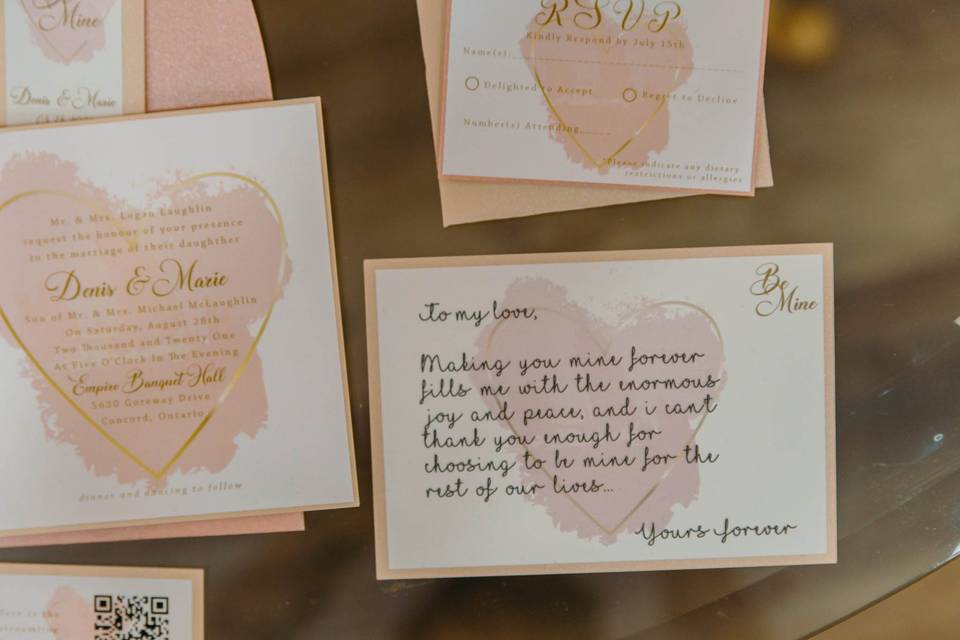 Mine
Denis & Marie
Mr. & Mrs. Logan Laughlin
request the honour of your presence
to the marriage of their daughther
Denis & Marie
Son of Mr. & Mrs. Michael McLaughlin
On Saturday, August 28th
Two Thousand and Twenty One
At Five O'Clock In The Evening
Empire Banquet Hall
5630 Goreway Drive
Concord, Ontario
dinner and dancing to follow
RSVP
Kindly Respond by July 15th
Name(s)
Delighted to Accept
Regret to Decline
Number(s) Attending
*Please indicate any dietary
restrictions or allergies
Be
Mine
To my love,
Making you mine forever
fills me with the enormous
joy and peace, and i can't
thank you enough for
choosing to be mine for the
rest of our lives...
Yours forever
is the